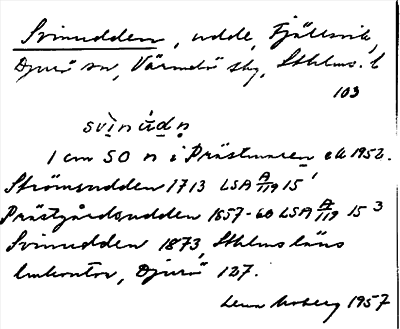 Svinudden, udde, Fjällsvik,
Djurö sn, Värmdö skg, Sthlms. l
103
svìnúdṇ
1 cm SO n i Prästmaren ek 1952.
Strömsudden 1713 LSA A/119 15¹
Prästgårdsudden 1657-60 LSA A/119 15³
Svinudden 1873, Sthlms läns
lmkontor, Djurö 127.
Lena Moberg 1957